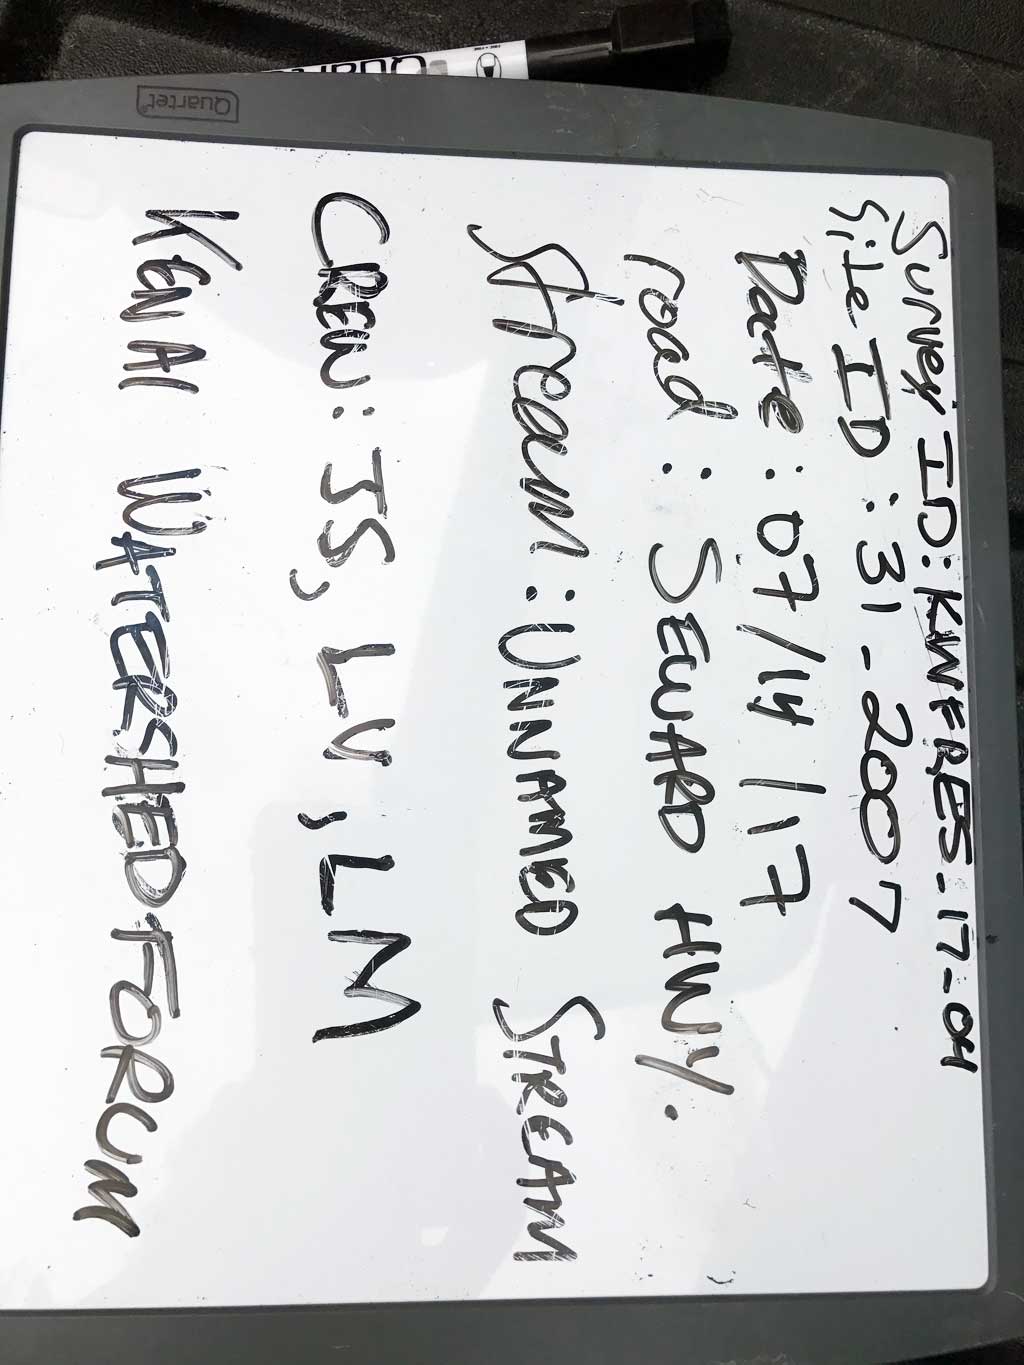 Survey ID: KWFRES-17-04
Site ID: 31-2007
Date: 07/14/17
road: SEWARD HWY.
Stream: UNNAMED STREAM
CREW: JS, LV, LM
KENAI WATERSHED FORUM
Quartet